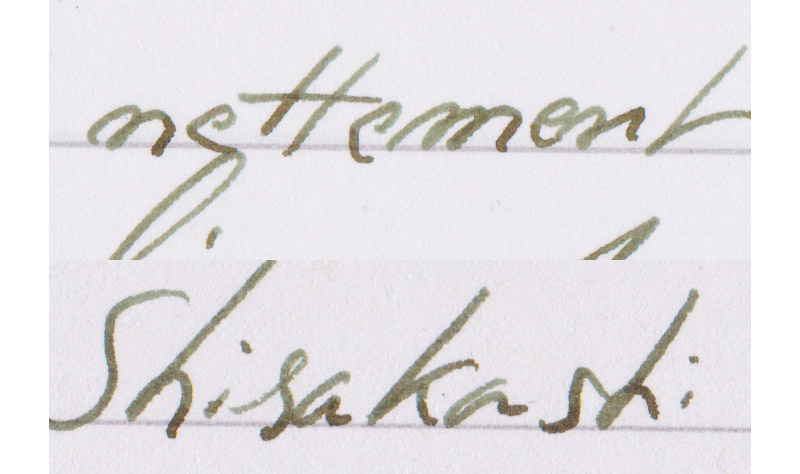 nettement
Shirakashi